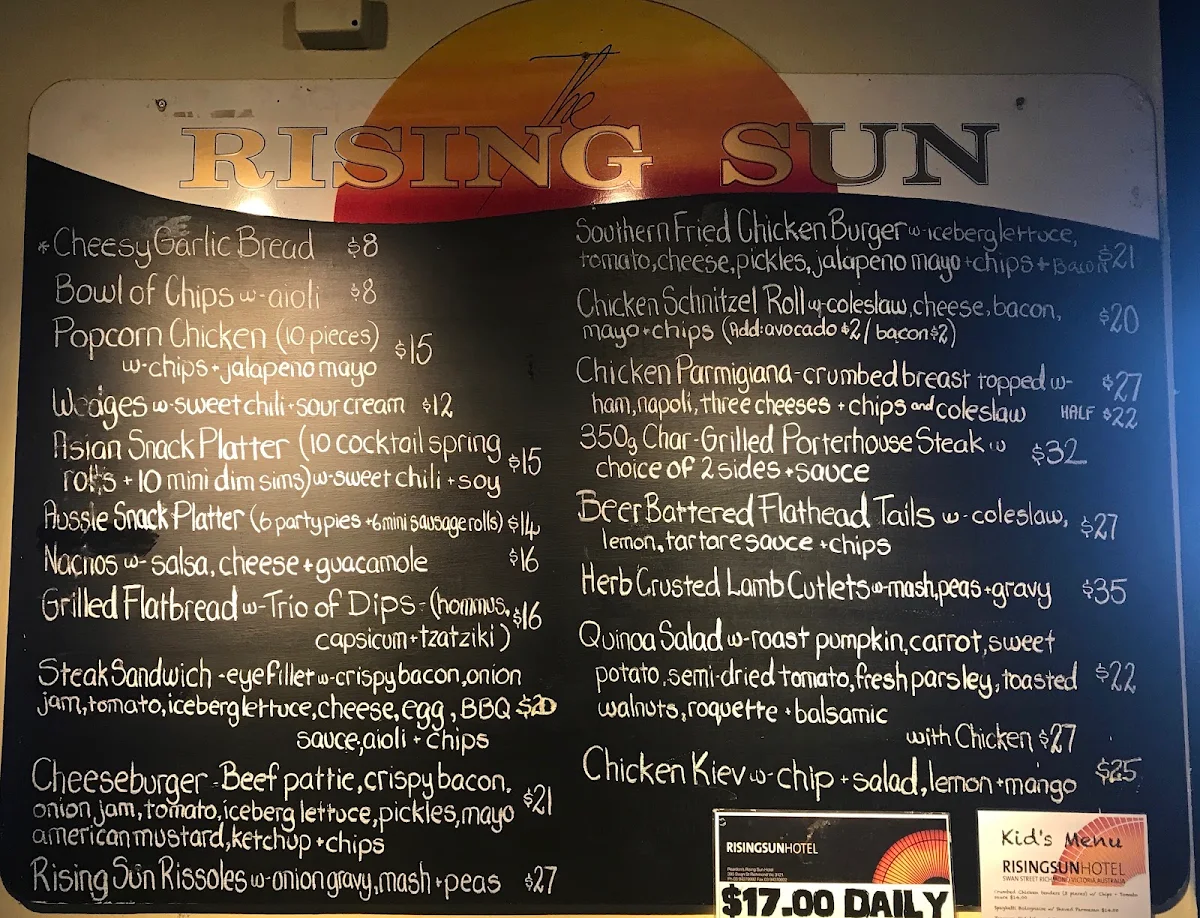 The
RISING SUN
*Cheesy Garlic Bread $8
Bowl of Chips w-aioli $8
Popcorn Chicken (10 pieces) $15
w-chips+jalapeno mayo
Wedges w-sweet chili+sour cream $12
Asian Snack Platter (10 cocktail spring
rolls + 10 mini dim sims) w-sweet chili + soy $15
Aussie Snack Platter (6 party pies +6 mini sausage rolls) $14
Nachos w- salsa, cheese + guacamole $16
Grilled Flatbread w-Trio of Dips-(hommus, $16
capsicum+tzatziki)
Steak Sandwich -eye fillet w-crispy bacon, onion
jam, tomato, iceberg lettuce, cheese, egg, BBQ $20
sauce, aioli + chips
Cheeseburger-Beef pattie, crispy bacon,
onion jam, tomato, iceberg lettuce, pickles, mayo $21
american mustard, ketchup +chips
Rising Sun Rissoles w-onion gravy, mash+peas $27
Southern Fried Chicken Burger w-iceberg lettuce,
tomato, cheese, pickles, jalapeno mayo +chips + Bacon $21
Chicken Schnitzel Roll w-coleslaw, cheese, bacon, $20
mayo+chips (Add: avocado $2/ bacon $2)
Chicken Parmigiana-crumbed breast topped w- $27
ham, napoli, three cheeses + chips and coleslaw HALF $22
350g Char-Grilled Porterhouse Steak w $32
choice of 2 sides+sauce
Beer Battered Flathead Tails w-coleslaw, $27
lemon, tartare sauce +chips
Herb Crusted Lamb Cutlets w-mash, peas +gravy $35
Quinoa Salad w-roast pumpkin, carrot, sweet
potato, semi-dried tomato, fresh parsley, toasted $22
walnuts, roquette + balsamic
with Chicken $27
Chicken Kiev w-chip + salad, lemon+mango $25
RISINGSUNHOTEL
$17.00 DAILY
Kid's Menu
RISINGSUNHOTEL
SWAN STREET RICHMOND, VICTORIA AUSTRALIA